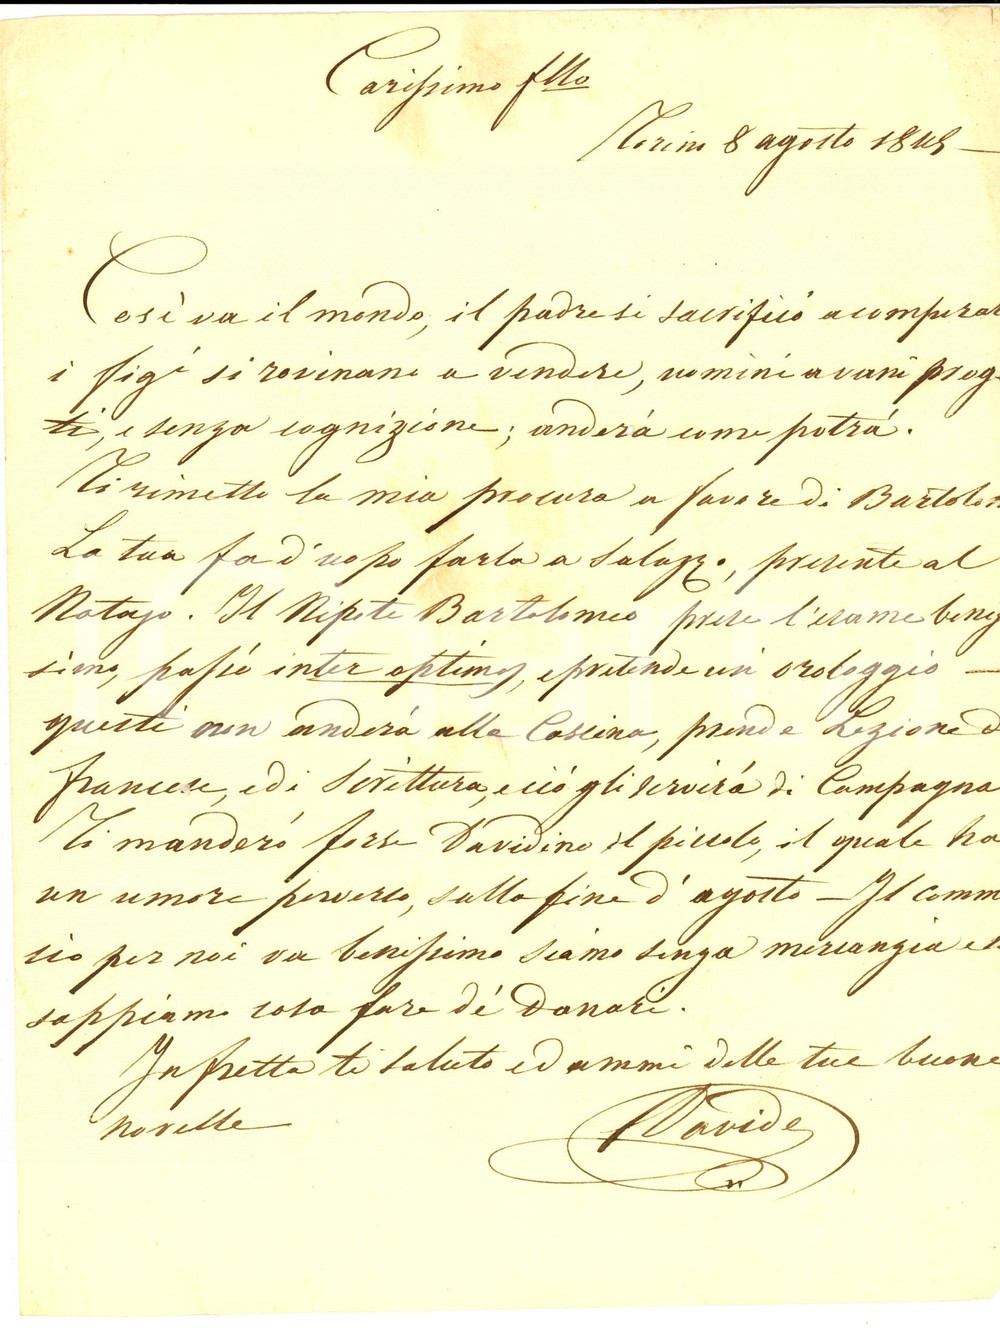 Carissimo fllo
Torino 8 agosto 1845 —
Così va il mondo, il padre si sacrificò a comperar
i figi si rovinano a vendere, uomini avani preg-
ti, e senza cognizione; anderà come potrà.
Ti rimetto la mia procura a favore di Bartolom
La tua fa d'uopo farla a Saluzzo, presente al
Notajo. Il Nipote Bartolomeo prese l'esame benis
simo, passò inter optimos, e pretende un orologgio —
questi non anderà alla Cascina, prende Lezione d
francese, e di Scrittura, e ciò gli servirà di Campagna
Ti manderò forse Davidino il piccolo, il quale ha
un umore perverso, sulla fine d'agosto — Il comm
cio per noi va benissimo siamo senza mercanzia e n
sappiamo cosa fare dè Danari.
In fretta ti saluto ed ammi delle tue buone
novelle —
Davide